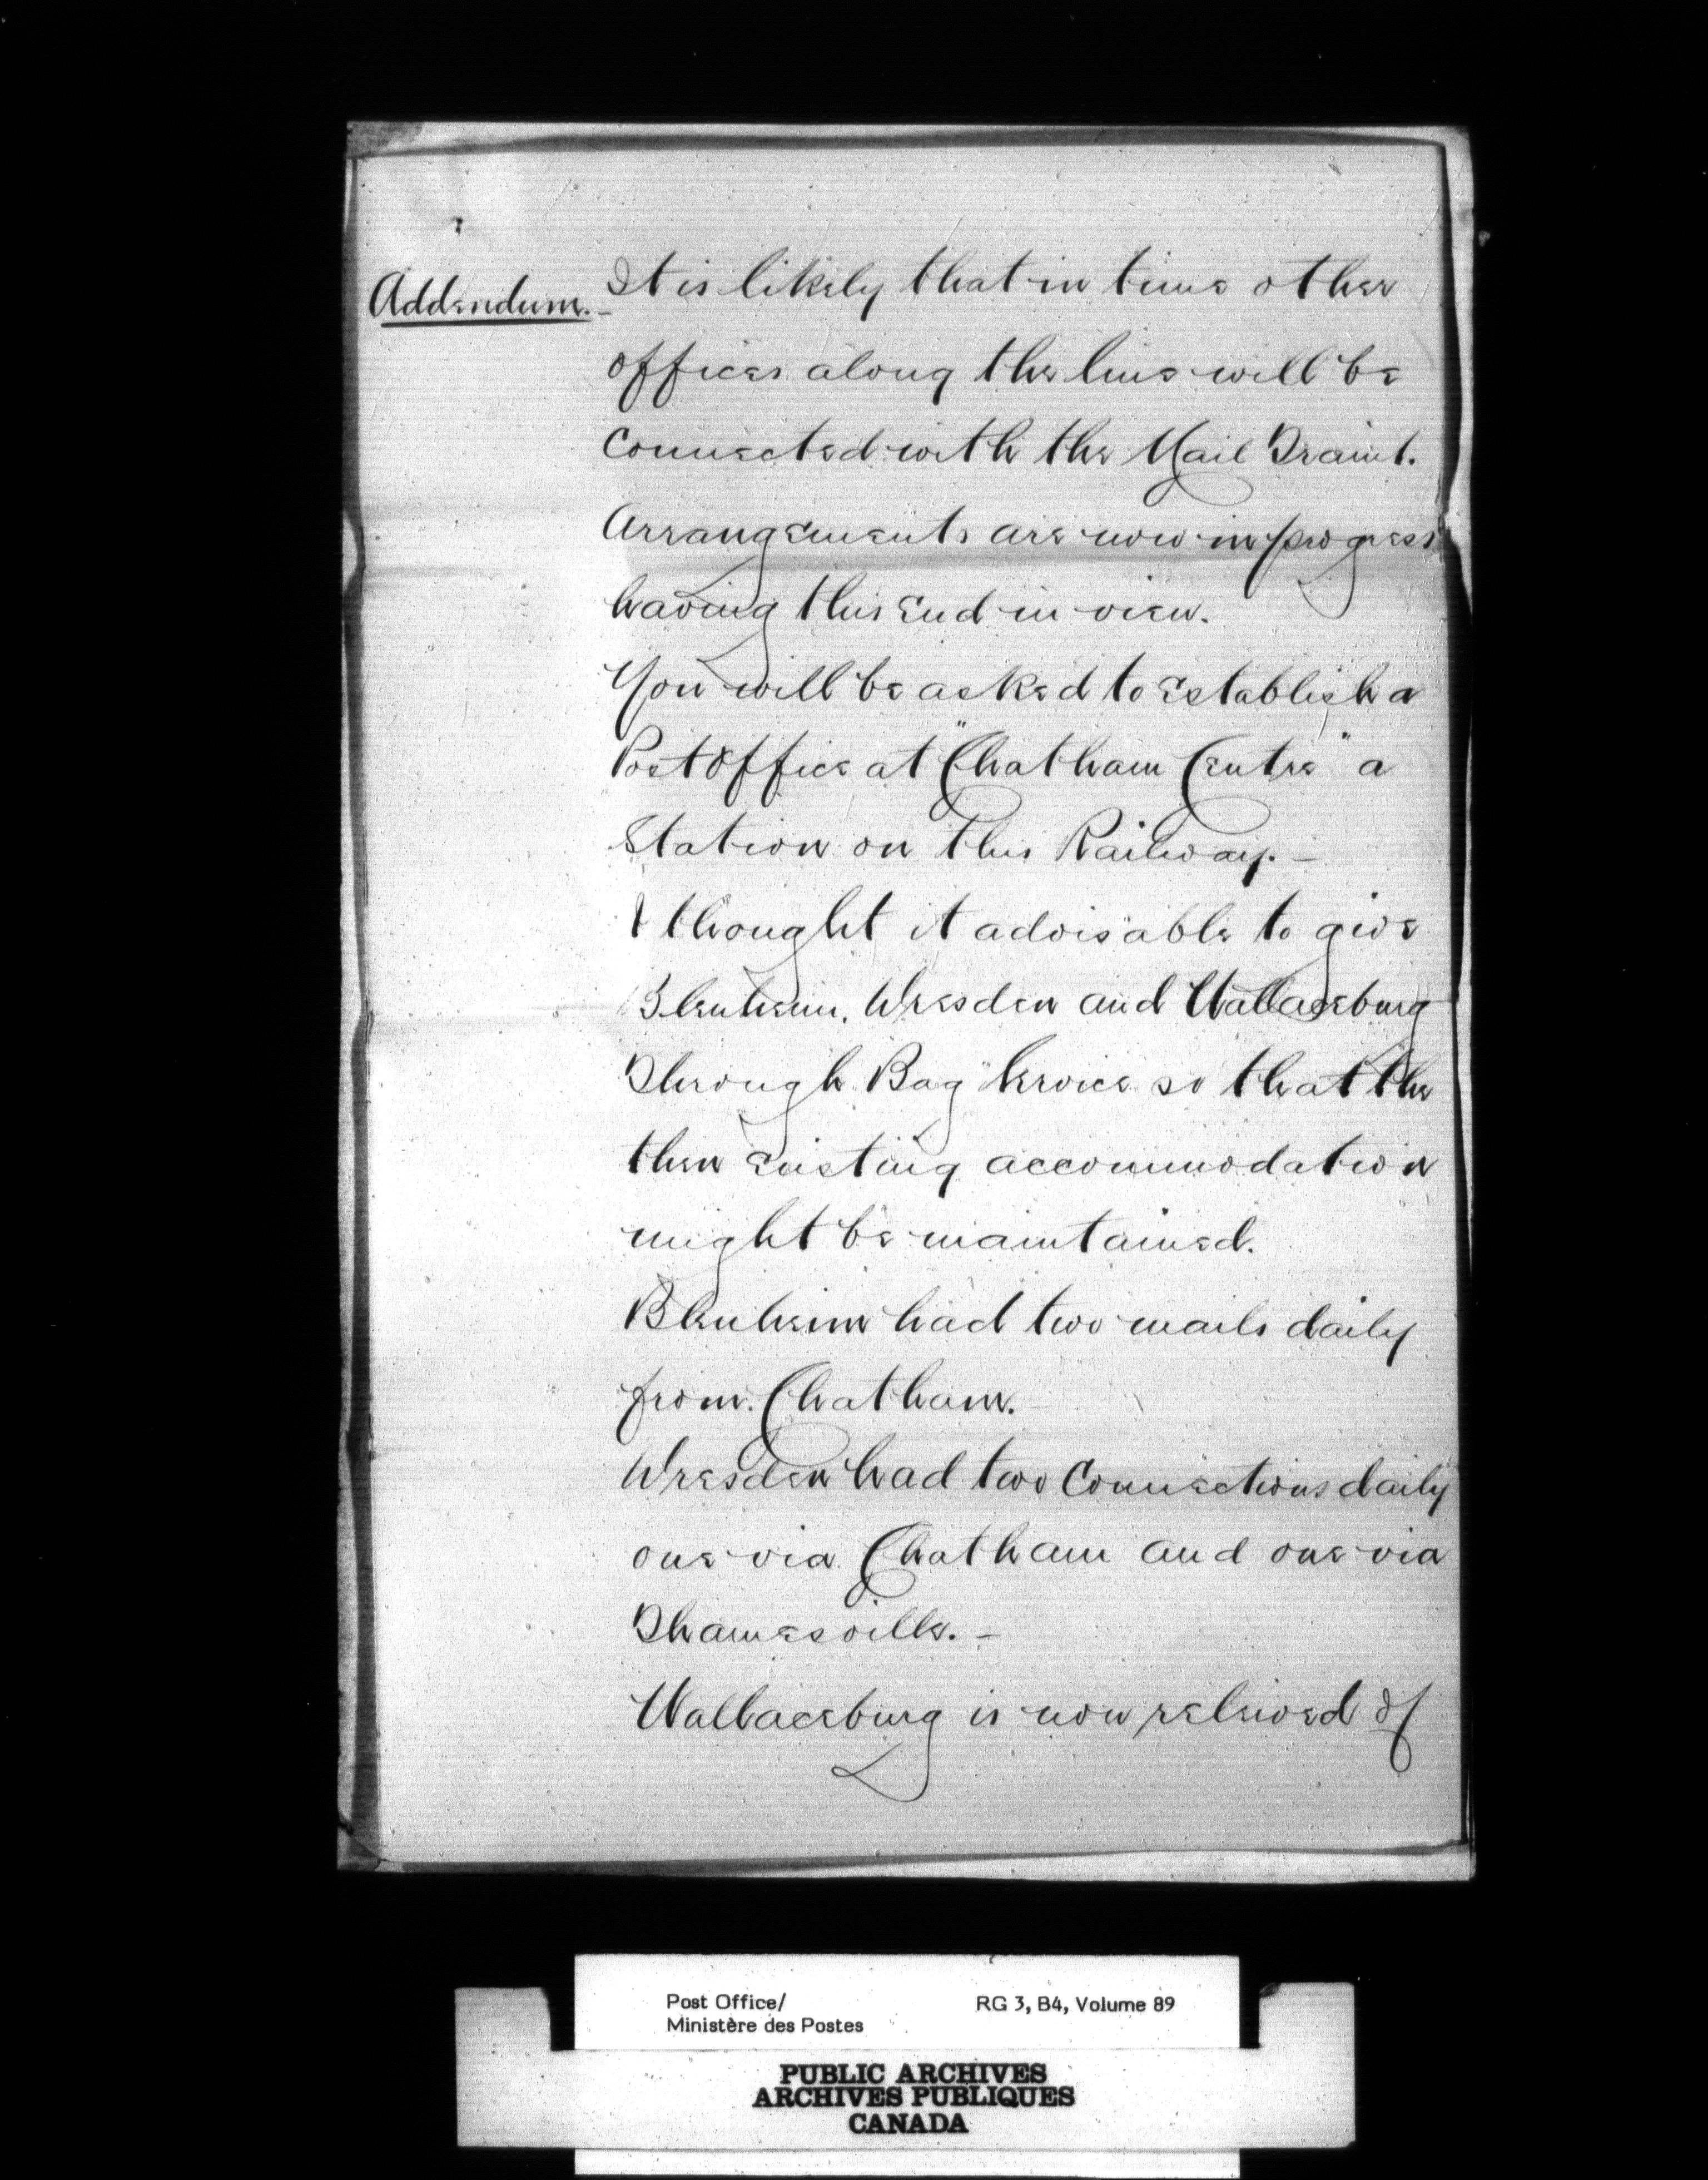 Addendum.-
It is likely that in time other
offices along the line will be
connected with the Mail Trains.
Arrangements are now in progress
having this end in view.
You will be asked to establish a
Post Office at "Chatham Centre" a
Station on this Railway.-
I thought it advisable to give
Blenheim, Dresden and Wallaceburg
Through Bag Service so that the
then existing accommodation
might be maintained.
Blenheim had two mails daily
from Chatham.
Dresden had two Connections daily
one via Chatham and one via
Thamesville.-
Wallaceburg is now relieved of
Post Office/
Ministère des Postes
RG 3, B4, Volume 89
PUBLIC ARCHIVES
ARCHIVES PUBLIQUES
CANADA